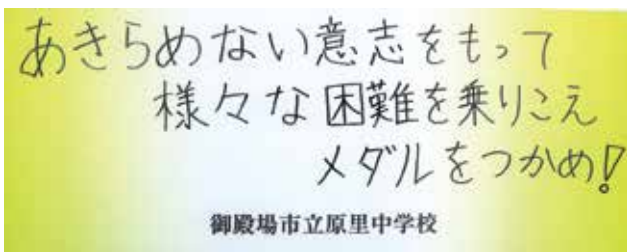 あきらめない意志をもって
様々な困難を乗りこえ
メダルをつかめ!
御殿場市立原里中学校